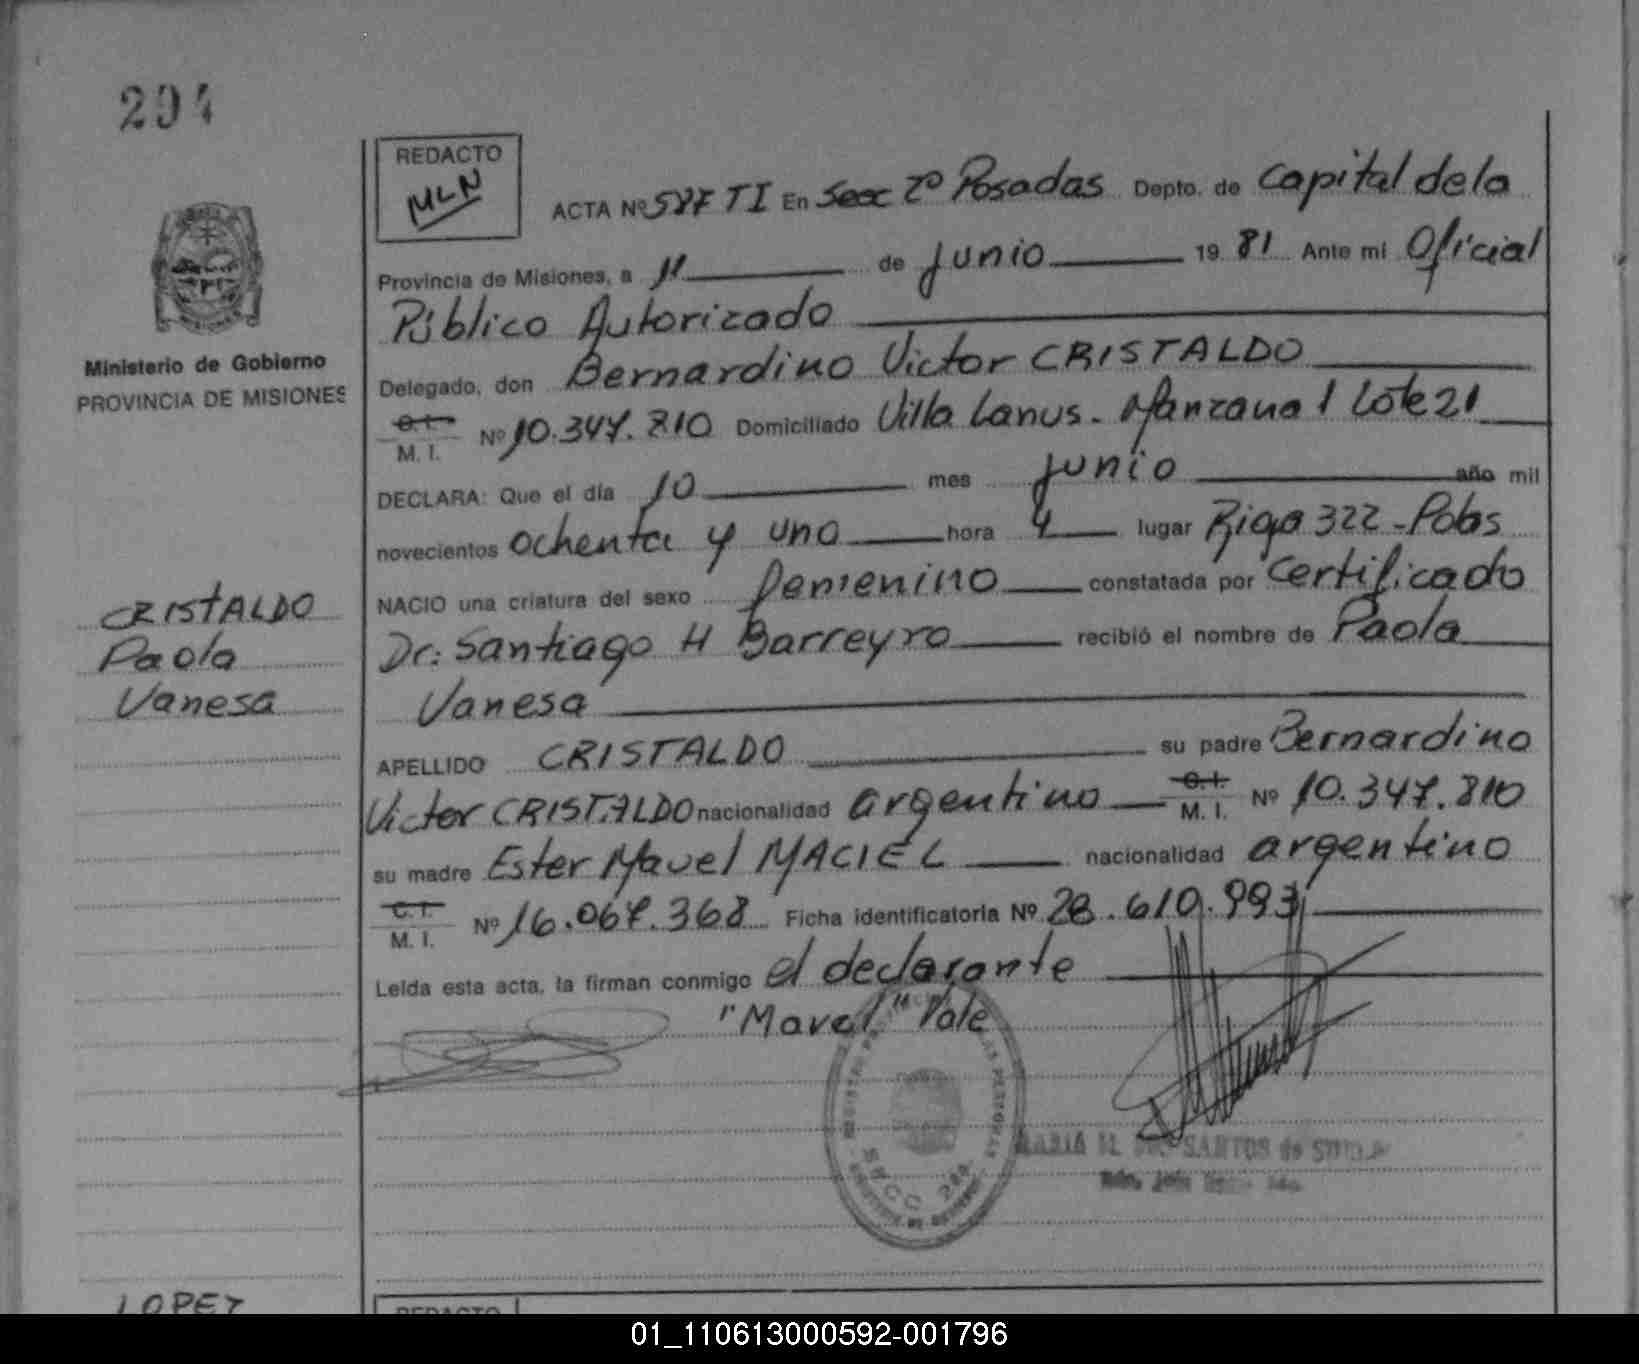 294
REDACTO
MLN
ACTA Nº 587 TI En Secc 2º Posadas Depto. de Capital de la
Provincia de Misiones, a 11 de junio 19 81 Ante mi Oficial
Público Autorizado
Ministerio de Gobierno
PROVINCIA DE MISIONES
Delegado, don Bernardino Victor CRISTALDO
C.I.
M. I. Nº 10.347.810 Domiciliado Villa Lanus - Manzana 1 Lote 21
DECLARA: Que el día 10 mes junio año mil
novecientos ochenta y uno hora 4 lugar Rioja 322 - Pdas
NACIO una criatura del sexo femenino constatada por Certificado
CRISTALDO
Paola
Vanesa
Dr: Santiago H Barreyro recibió el nombre de Paola
Vanesa
APELLIDO CRISTALDO su padre Bernardino
Victor CRISTALDO nacionalidad argentino C.I. M. I. Nº 10.347.810
su madre Ester Mavel MACIEL nacionalidad argentino
C.I.
M. I. Nº 16.067.368 Ficha identificatoria Nº 28.610.993
Leída esta acta, la firman conmigo el declarante
"Mavel" Vale
SECC 2da
MARIA SANTOS de
LOPEZ
REDACTO
01_110613000592-001796